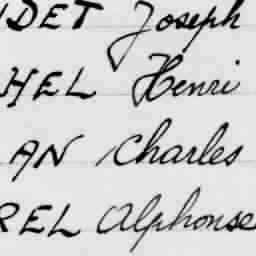 DET Joseph
HEL Henri
AN Charles
REL Alphonse